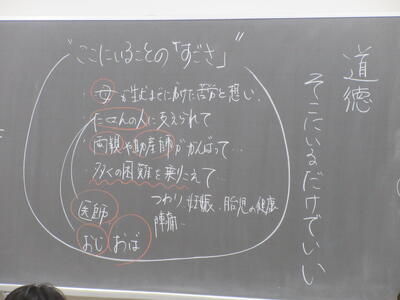 道徳
そこにいるだけでいい
"ここにいることの「すごさ」"
・母が生むまでにかけた苦労と想い、
・たくさんの人に支えられて
・両親や助産師ががんばって…
・多くの困難を乗りこえて…
つわり、妊娠、胎児の健康
陣痛…
医師
おじ おば